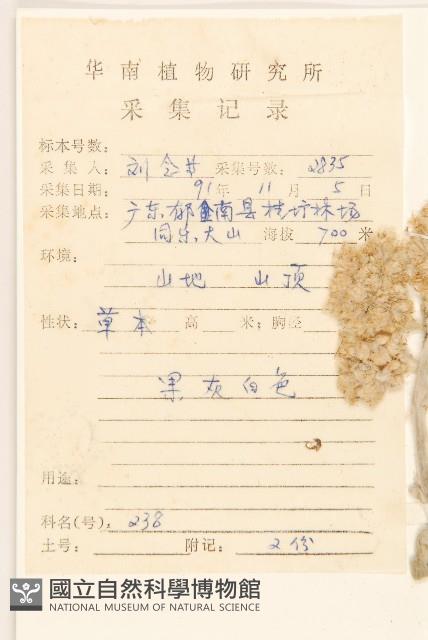 华南植物研究所
采集记录
标本号数:
采集人: 刘念等 采集号数: 2835
采集日期: 91年 11月 5日
采集地点: 广东郁南县桂圩林场
同乐大山 海拔 700 米
环境:
山地 山顶
性状: 草本 高 米; 胸径
果灰白色
用途:
科名(号): 238
土号: 附记: 2份
國立自然科學博物館
NATIONAL MUSEUM OF NATURAL SCIENCE